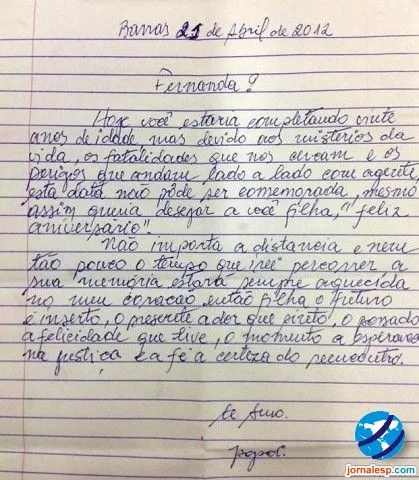 Barras 21 de Abril de 2012
Fernanda!
Hoje você estaria completando vinte
anos de idade mas devido aos mistérios da
vida, os fatalidades que nos cercam e os
perigos que andam lado a lado com agente,
esta data não pôde ser comemorada, mesmo
assim queria desejar a você filha, "feliz
aniversário".
Não importa a distancia e nem
tão pouco o tempo que irei percorrer a
sua memória estará sempre aquecida
no meu coração, então filha o futuro
é inserto, o presente a dor que sinto, o passado
a felicidade que tive, o momento a esperança
na justiça e a fé a certeza do reencontro.
te Amo.
papai.
jornalesp.com